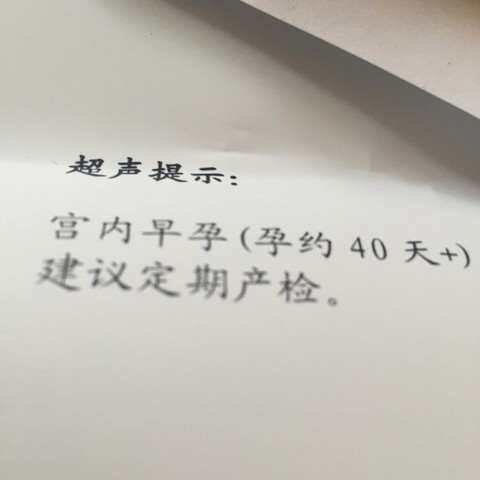 超声提示:
宫内早孕(孕约 40 天+)
建议定期产检。